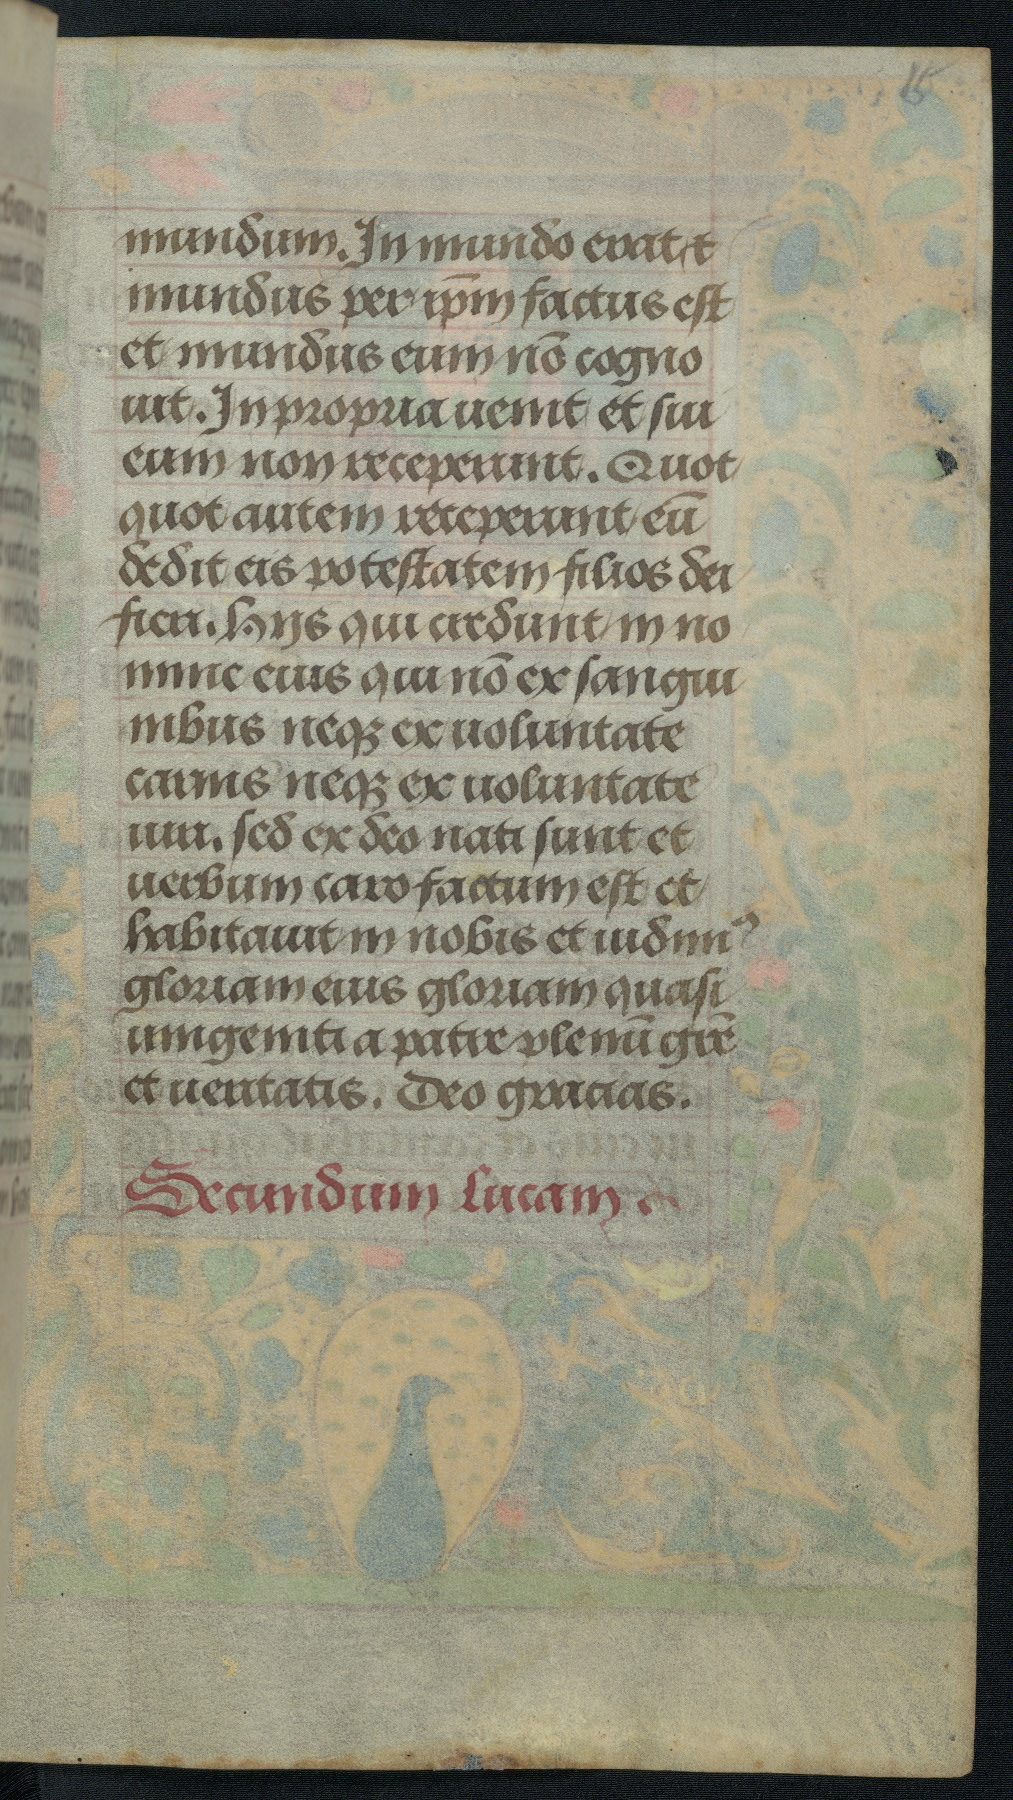 15
mundum. In mundo erat et
mundus per ip̄m factus est
et mundus eum nō cogno
uit. In propria uenit et sui
eum non receperunt. Quot
quot autem receperunt eū
dedit eis potestatem filios dei
fieri. Hijs qui credunt in no
mine eius qui nō ex sangui
nibus neqꝫ ex uoluntate
carnis neqꝫ ex uoluntate
uiri. sed ex deo nati sunt et
uerbum caro factum est et
habitauit in nobis et uidim⁹
gloriam eius gloriam quasi
unigeniti a patre plenū gr̄e
et ueritatis. Deo gracias.
Secundum Lucam